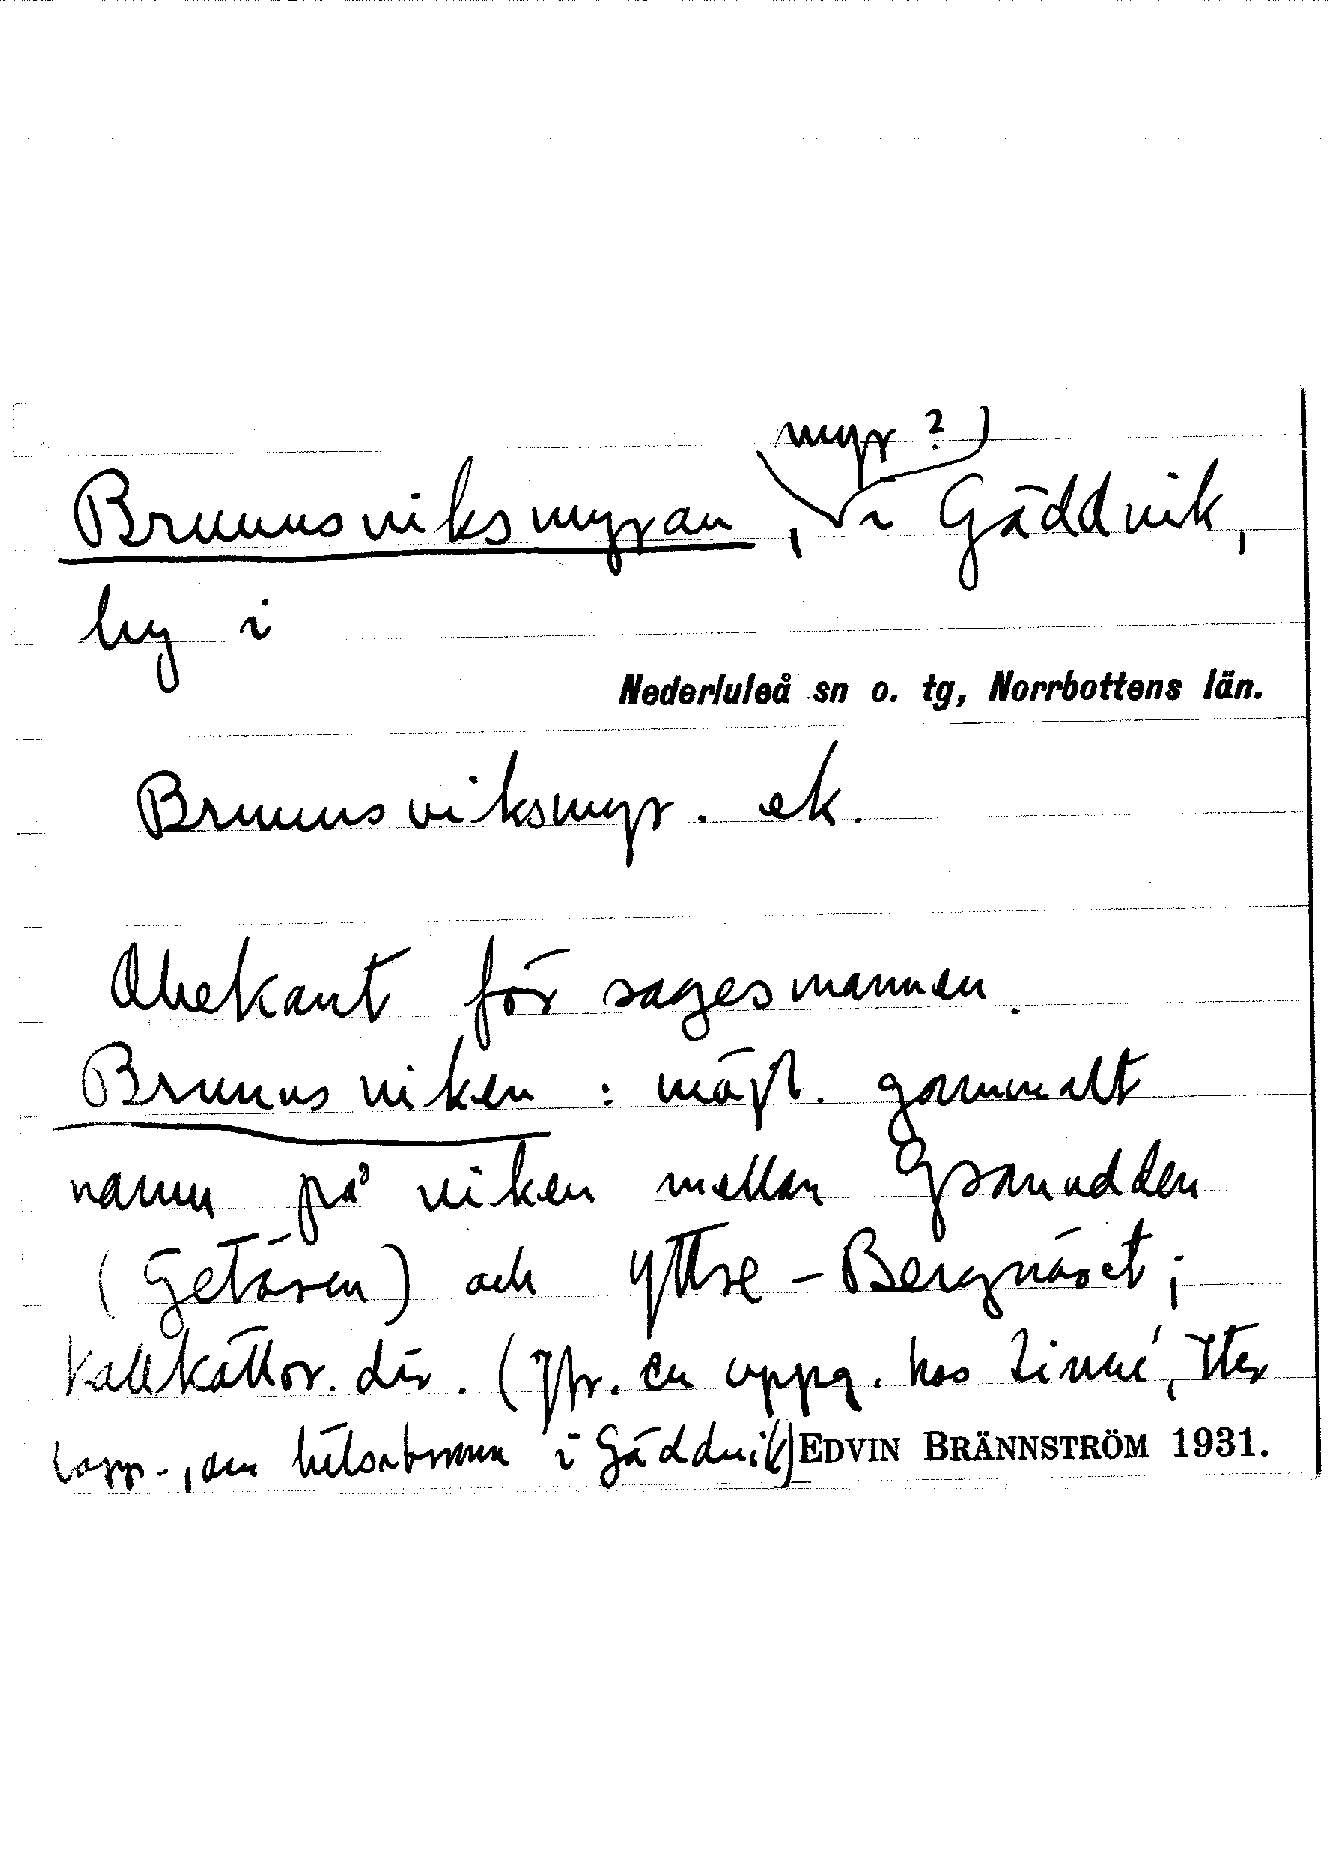 myr?)
Brunnsviksmyran, i Gäddvik,
by i
Nederluleå sn o. tg, Norrbottens län.
Brunnsviksmyr. ek.
Obekant för sagesmannen.
Brunnsviken: möjl. gammalt
namn på viken mellan Granudden
(Getören) och Yttre-Bergnäset;
Kallkällor där. (Jfr. en uppg. hos Linné, Iter
lapp., om hälsobrunn i Gäddvik)
EDVIN BRÄNNSTRÖM 1931.